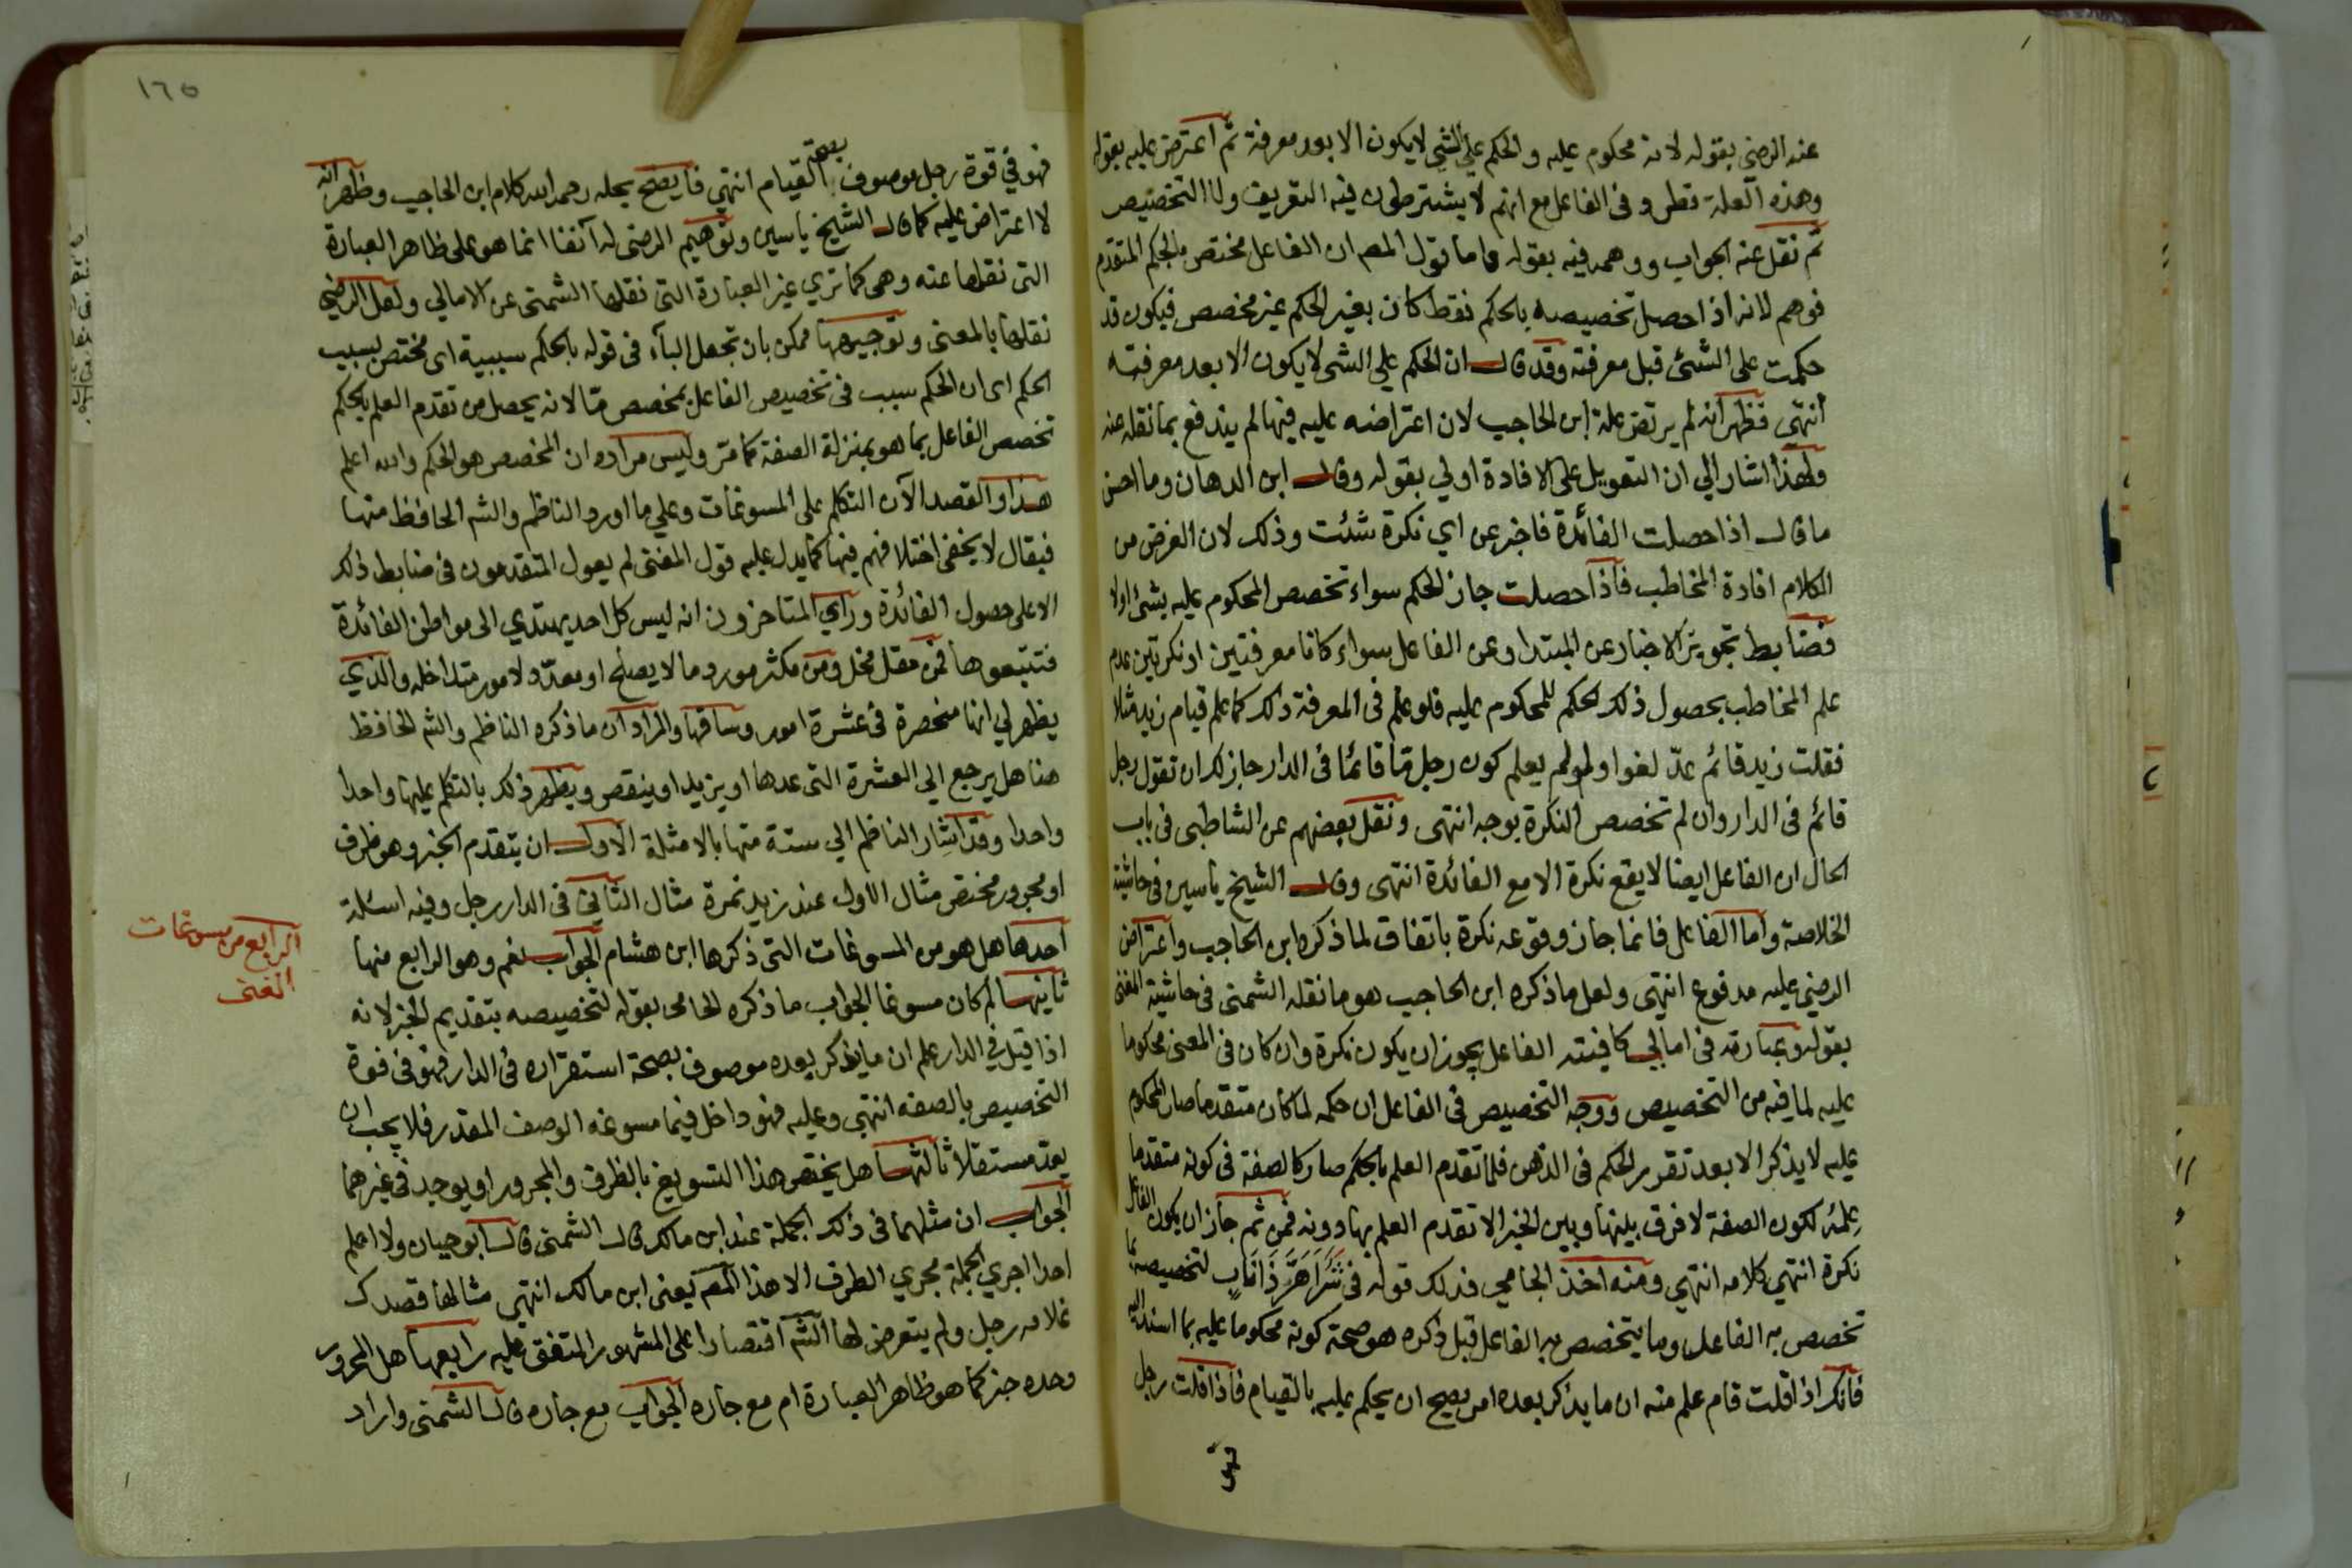 عنه الرضي بقوله لانه محكوم عليه والحكم علي الشي لا يكون الا بعد معرفة ثم اعترض عليه بقوله
وهذه العلة تطرد في الفاعل مع انهم لا يشترطون فيه التعريف ولا التخصيص
ثم نقل عنه الجواب ووهمه فيه بقوله واما قول المص ان الفاعل مختص بالحكم المتقدم
فوهم لانه اذا حصل تخصيصه بالحكم فقط كان بغير الحكم غير مخصص فيكون قد
حكمت على الشئ قبل معرفته وقد قال ان الحكم علي الشي لا يكون الا بعد معرفته
انتهي فظهر انه لم يرتض علة ابن الحاجب لان اعتراضه عليه فيها لم يندفع بما نقله عنه
ولهذا اشار الي ان التعويل على الافادة اولي بقوله وقال ابن الدهان وما احسن
ما قال اذا حصلت الفائدة فاخبر عن اي نكرة شئت وذلك لان الغرض من
الكلام افادة المخاطب فاذا حصلت جاز الحكم سواء تخصص المحكوم عليه بشئ اولا
فضابط تجويز الاخبار عن المبتدا وعن الفاعل سواء كانا معرفتين او نكرتين عدم
علم المخاطب بحصول ذلك الحكم للمحكوم عليه فلو علم في المعرفة ذلك كما علم قيام زيد مثلا
فقلت زيد قائم عدّ لغوا ولو لم يعلم كون رجل مّا قائما في الدار جاز لك ان تقول رجل
قائم في الدار وان لم تخصص النكرة بوجه انتهى ونقل بعضهم عن الشاطبي في باب
الحال ان الفاعل ايضا لا يقع نكرة الا مع الفائدة انتهى وقال الشيخ ياسين في حاشية
الخلاصة واما الفاعل فانما جاز وقوعه نكرة باتفاق لما ذكره ابن الحاجب واعتراض
الرضي عليه مدفوع انتهي ولعل ما ذكره ابن الحاجب هو ما نقله الشمني في حاشية المغنى
بقوله وعبارته في امالي كافيته الفاعل يجوز ان يكون نكرة وان كان في المعنى محكوما
عليه لما فيه من التخصيص ووجه التخصيص في الفاعل ان حكمه لما كان متقدما صار المحكوم
عليه لا يذكر الا بعد تقرر الحكم في الذهن فلما تقدم العلم بالحكم صار كالصفة في كونه متقدما
علمه لكون الصفة لا فرق بينها وبين الخبر الا تقدم العلم بها دونه فمن ثم جاز ان يكون الفاعل
نكرة انتهي كلامه انتهي ومنه اخذ الجامي فذلك قوله في شَرٌّ اَهَرَّ ذَا نَابٍ لتخصيصه بما
تخصص به الفاعل وما يتخصص به الفاعل قبل ذكره هو صحة كونه محكوما عليه بما اسند اليه
فانك اذا قلت قام علم منه ان ما يذكر بعده امر يصح ان يحكم عليه بالقيام فاذا قلت رجل
فهو
١٦٥
فهو في قوة رجل موصوف بصحة القيام انتهي فايضح بحله رحمه الله كلام ابن الحاجب وظهر انه
لا اعتراض عليه كما قال الشيخ ياسين وتوهيم الرضي له آنفا انما هو على ظاهر العبارة
التي نقلها عنه وهي كما تري غير العبارة التي نقلها الشمني عن الامالي ولعل الرضي
نقلها بالمعنى وتوجيهها ممكن بان تجعل البآء في قوله بالحكم سببية اى مختص بسبب
الحكم اى ان الحكم سبب في تخصيص الفاعل بمخصص مّا لانه يحصل من تقدم العلم بالحكم
تخصص الفاعل بما هو بمنزلة الصفة كما مرّ وليس مراده ان المخصص هو الحكم والله اعلم
هذا والقصد الآن التكلم على المسوغات وعلي ما اورد الناظم والشم الحافظ منها
فيقال لا يخفى اختلافهم فيها كما يدل عليه قول المغنى لم يعول المتقدمون في ضابط ذلك
الا على حصول الفائدة وراي المتاخرون انه ليس كل احد يهتدي الى مواطن الفائدة
فتتبعوها فمن مقل مخل ومن مكثر مورد ما لا يصلح او معدّد لامور متداخله والذي
يظهر لي انها منحصرة في عشرة امور وساقها والمراد ان ما ذكره الناظم والشم الحافظ
هنا هل يرجع الي العشرة التي عدها او يزيد او ينقص ويظهر ذلك بالتكلم عليها واحدا
واحدا وقد اشار الناظم الي ستة منها بالامثلة الاول ان يتقدم الخبر وهو ظرف
او مجرور مختص مثال الاول عند زيد نمرة مثال الثاني في الدار رجل وفيه اسئلة
احدها هل هو من المسوغات التي ذكرها ابن هشام الجواب نعم وهو الرابع منها
ثانيها لم كان مسوغا الجواب ما ذكره الجامى بقوله لتخصيصه بتقديم الخبر لانه
اذا قيل في الدار علم ان ما يذكر بعده موصوف بصحة استقراره في الدار فهو في قوة
التخصيص بالصفه انتهي وعليه فهو داخل فيما مسوغه الوصف المقدر فلا يجب ان
يعدّ مستقلا ثالثها هل يختص هذا التسويغ بالظرف والمجرور او يوجد في غيرهما
الجواب ان مثلهما في ذلك الجملة عند ابن مالك قال الشمني قال ابو حيان ولا اعلم
احدا اجري الجملة مجري الظرف الا هذا المص يعني ابن مالك انتهي مثالها قصدك
غلامه رجل ولم يتعرض لها الشم اقتصارا على المشهور المتفق عليه رابعها هل المجرور
وحده خبر كما هو ظاهر العبارة ام مع جاره الجواب مع جاره قال الشمني واراد
الرابع من مسوغات
المغنى